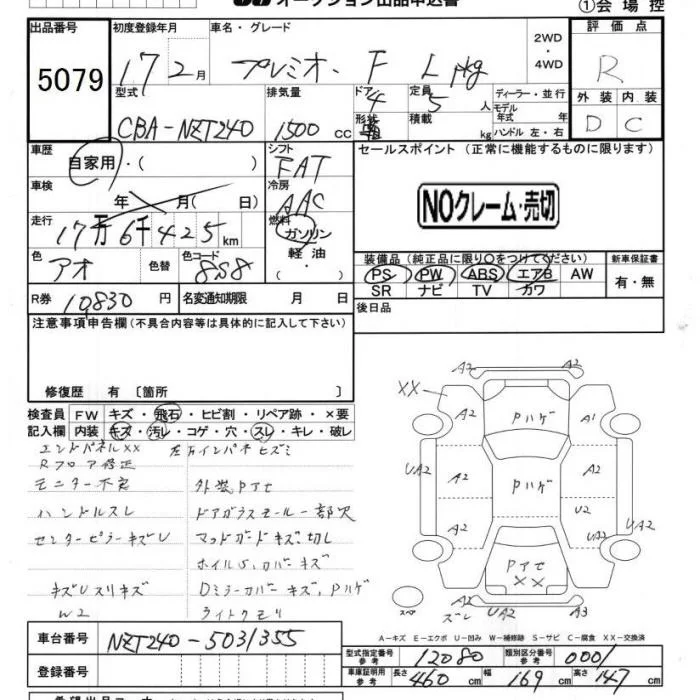 オークション出品申込書
①会場控
出品番号 5079
初度登録年月 17 2月
車名・グレード プレミオ F Lpkg
2WD・4WD
評価点 R
型式 CBA-NZT240
排気量 1500 cc
ドア 4 形状
定員 5 人
積載 kg
ディーラー・並行
モデル年式 年
ハンドル 左・右
外装 内装
D C
車歴 自家用・( )
シフト FAT
セールスポイント (正常に機能するものに限ります)
車検 年 月( 日)
冷房 AAC
NOクレーム・売切
走行 17万6千425km
燃料 ガソリン 軽油・
色 アオ 色替 色コード 8S8
装備品(純正品に限り○をつけてください)
新車保証書
PS PW ABS エアB AW
SR ナビ TV カワ
有・無
R券 10830 円
名変通知期限 月 日
後日品
注意事項申告欄(不具合内容等は具体的に記入して下さい)
修復歴 有 〔箇所 〕
検査員記入欄
FW キズ・飛石・ヒビ割・リペア跡・×要
内装 キズ・汚レ・コゲ・穴・スレ・キレ・破レ
エンドパネルXX
Rフロア修正
モニター不良 外装Pアセ
ハンドルスレ ドアガラスモール一部欠
センターピラーキズU マッドガードキズ、切レ
ホイルS、カバーキズ
キズUスリキズ Dミラーカバーキズ、Pハゲ
W2 ライトクモリ
A2
XX A2 Pハゲ A1
A2
UA2 A2 Pハゲ A2
U2 UA2
A2 UA2
Pアセ XX
スペア
A2 ズレ UA2 A3
A-キズ E-エクボ U-凹み W-補修跡 S-サビ C-腐食 XX-交換済
車台番号 NZT240-5031355
型式指定番号 参考 12080
類別区分番号 参考 0001
登録番号
車庫証明用 参考 長さ 460 cm 幅 169 cm 高さ 147 cm